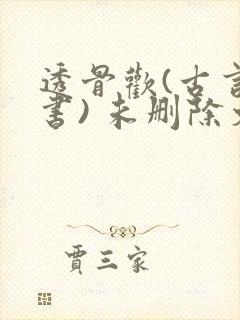 透骨歡(古言
書)未删除
賈三家